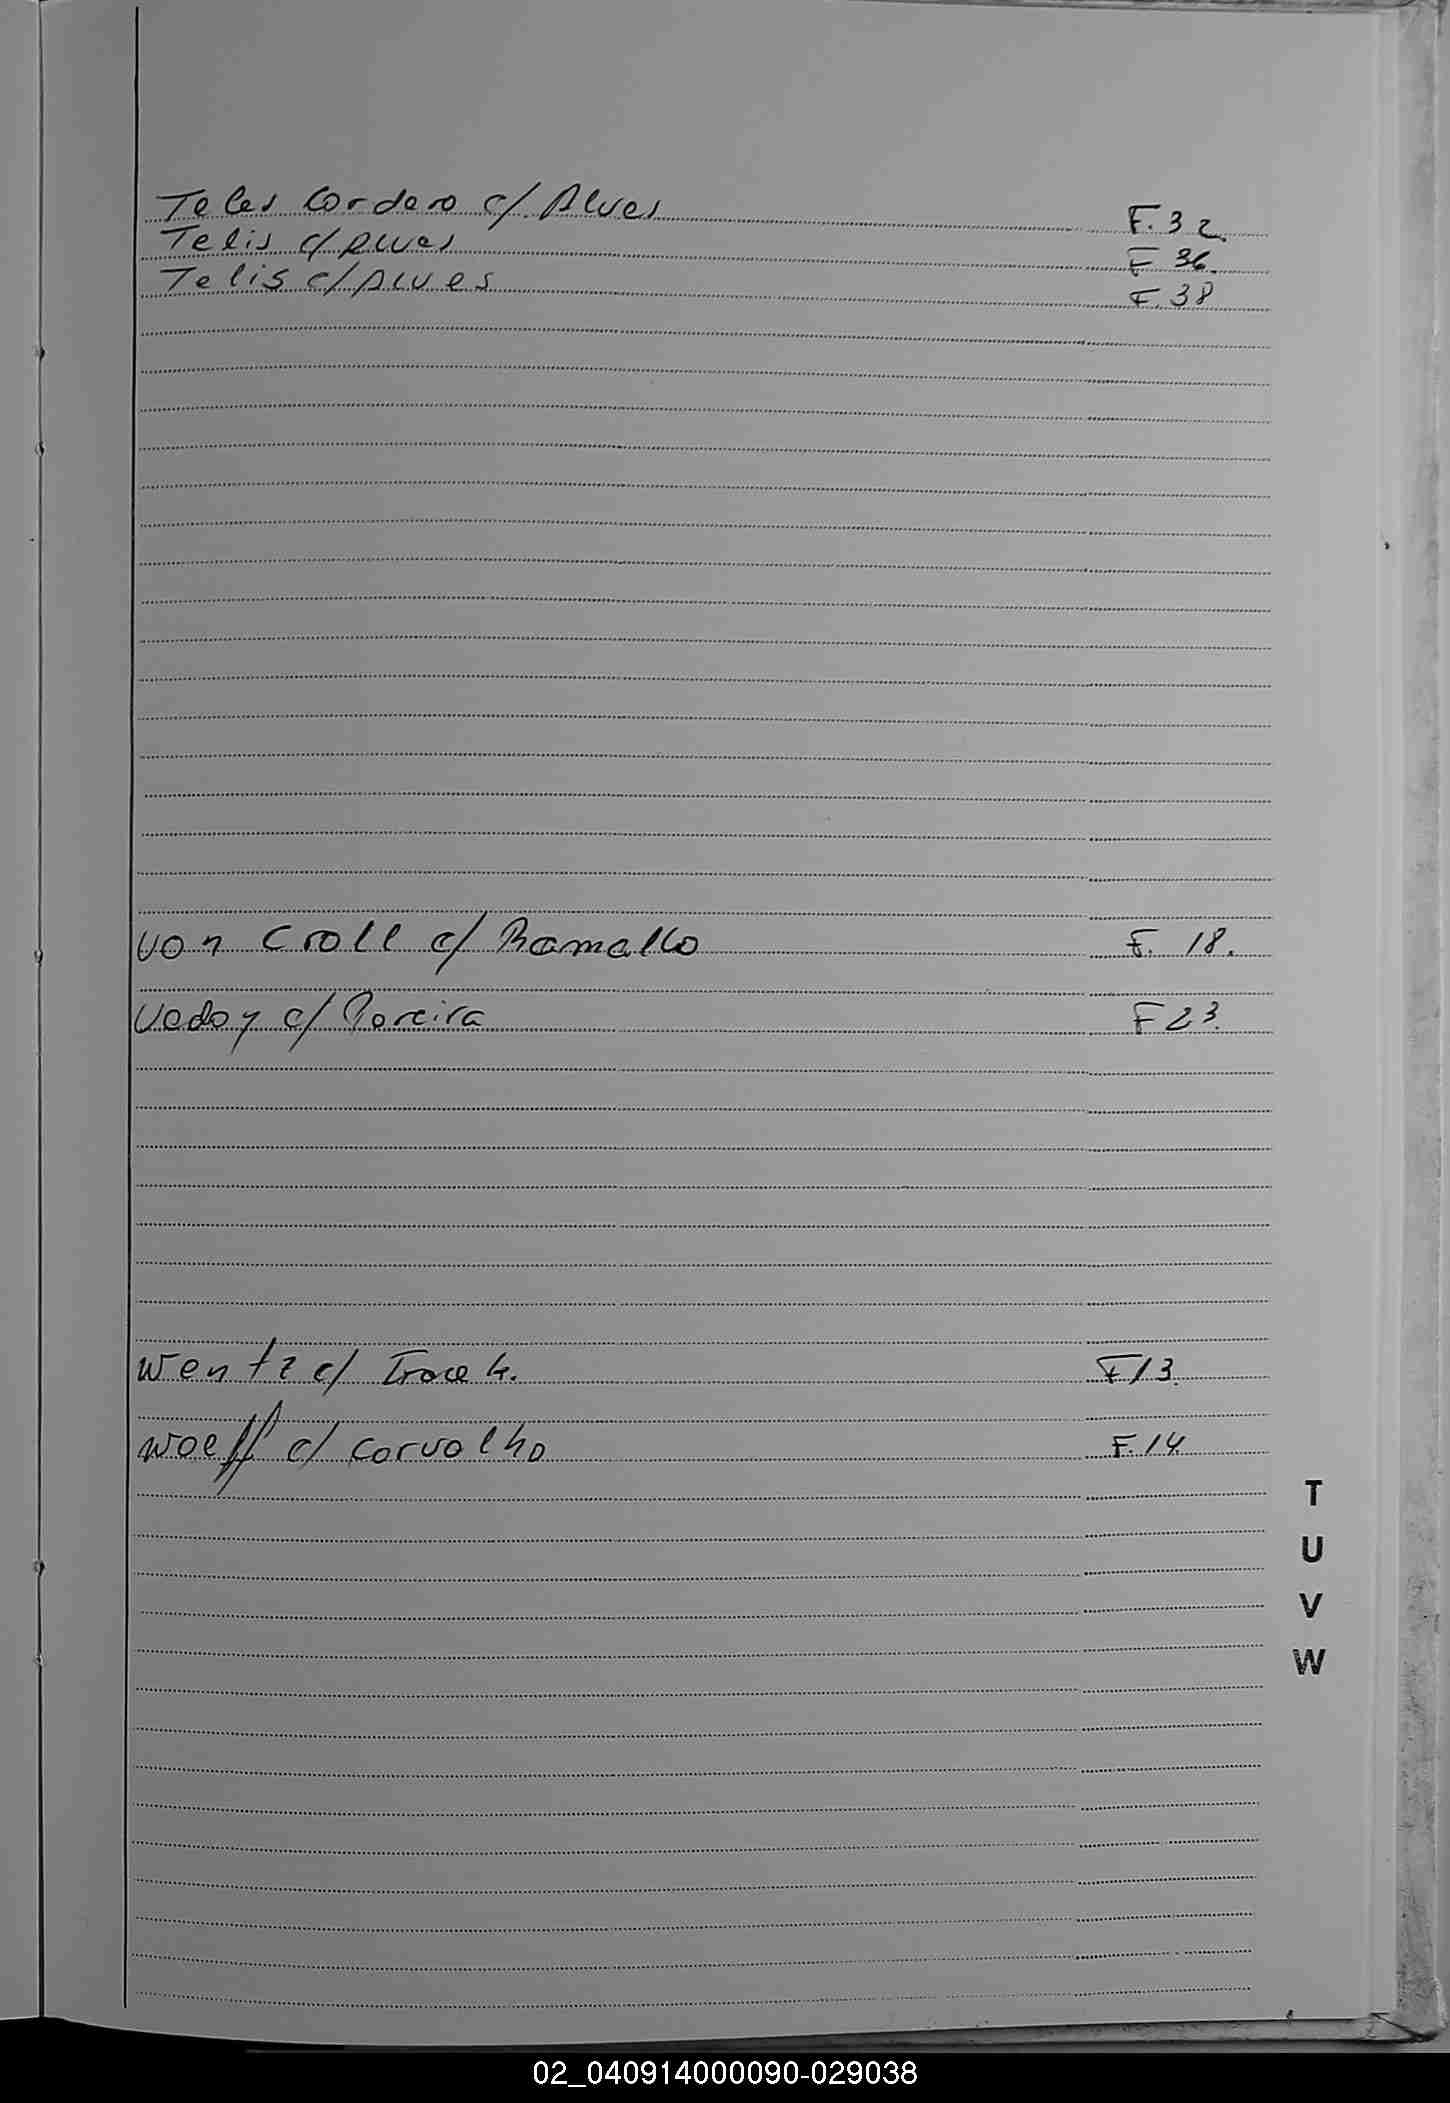 Teles Cordero c/ Alves F. 32.
Telis c/ Alves F 36.
Telis c/ Alves F. 38
Von Croll c/ Ramallo F. 18.
Vedoy c/ Pereira F 23.
Wentz c/ F 13.
Woeff c/ Carvalho F. 14
T
U
V
W
02_040914000090-029038